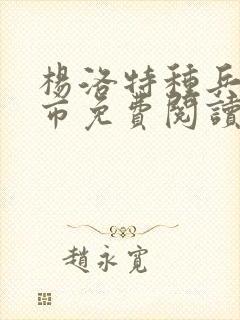 楊洛特種兵
市免費閱讀
趙永寬